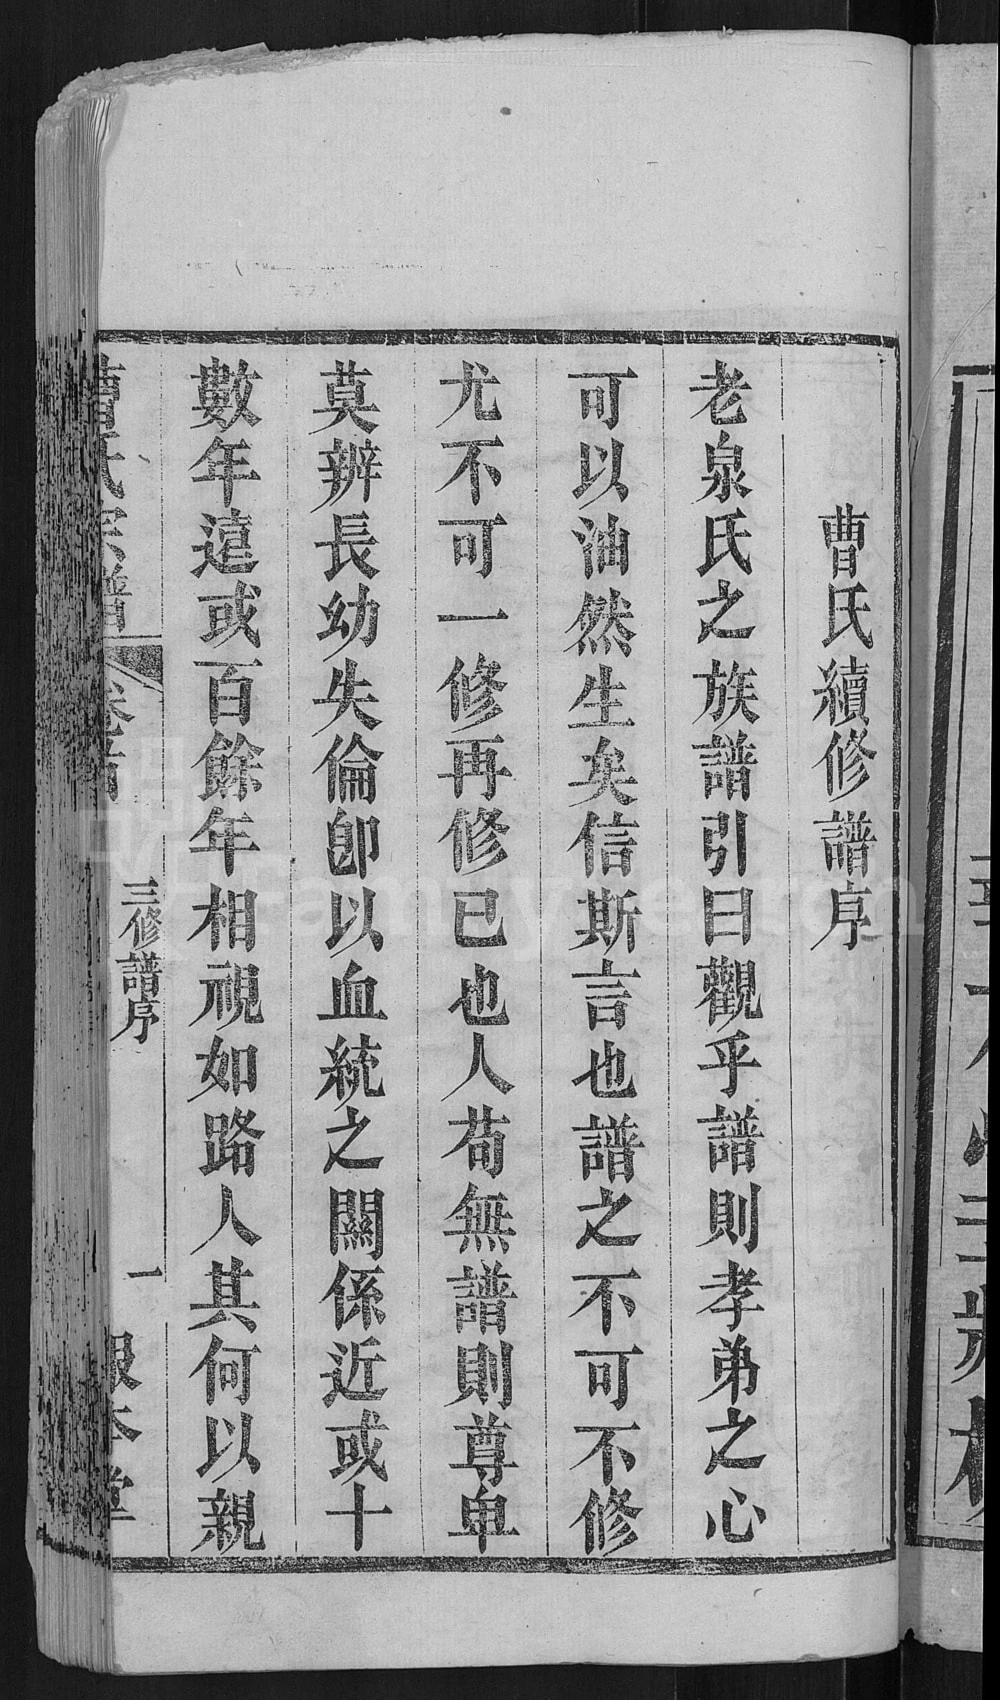 曹氏續修譜序
老泉氏之族譜引曰觀乎譜則孝弟之心
可以油然生矣信斯言也譜之不可不修
尤不可一修再修已也人苟無譜則尊卑
莫辨長幼失倫卽以血統之關係近或十
數年遠或百餘年相視如路人其何以親
曹氏宗譜
卷首
三修譜序
一
報本堂